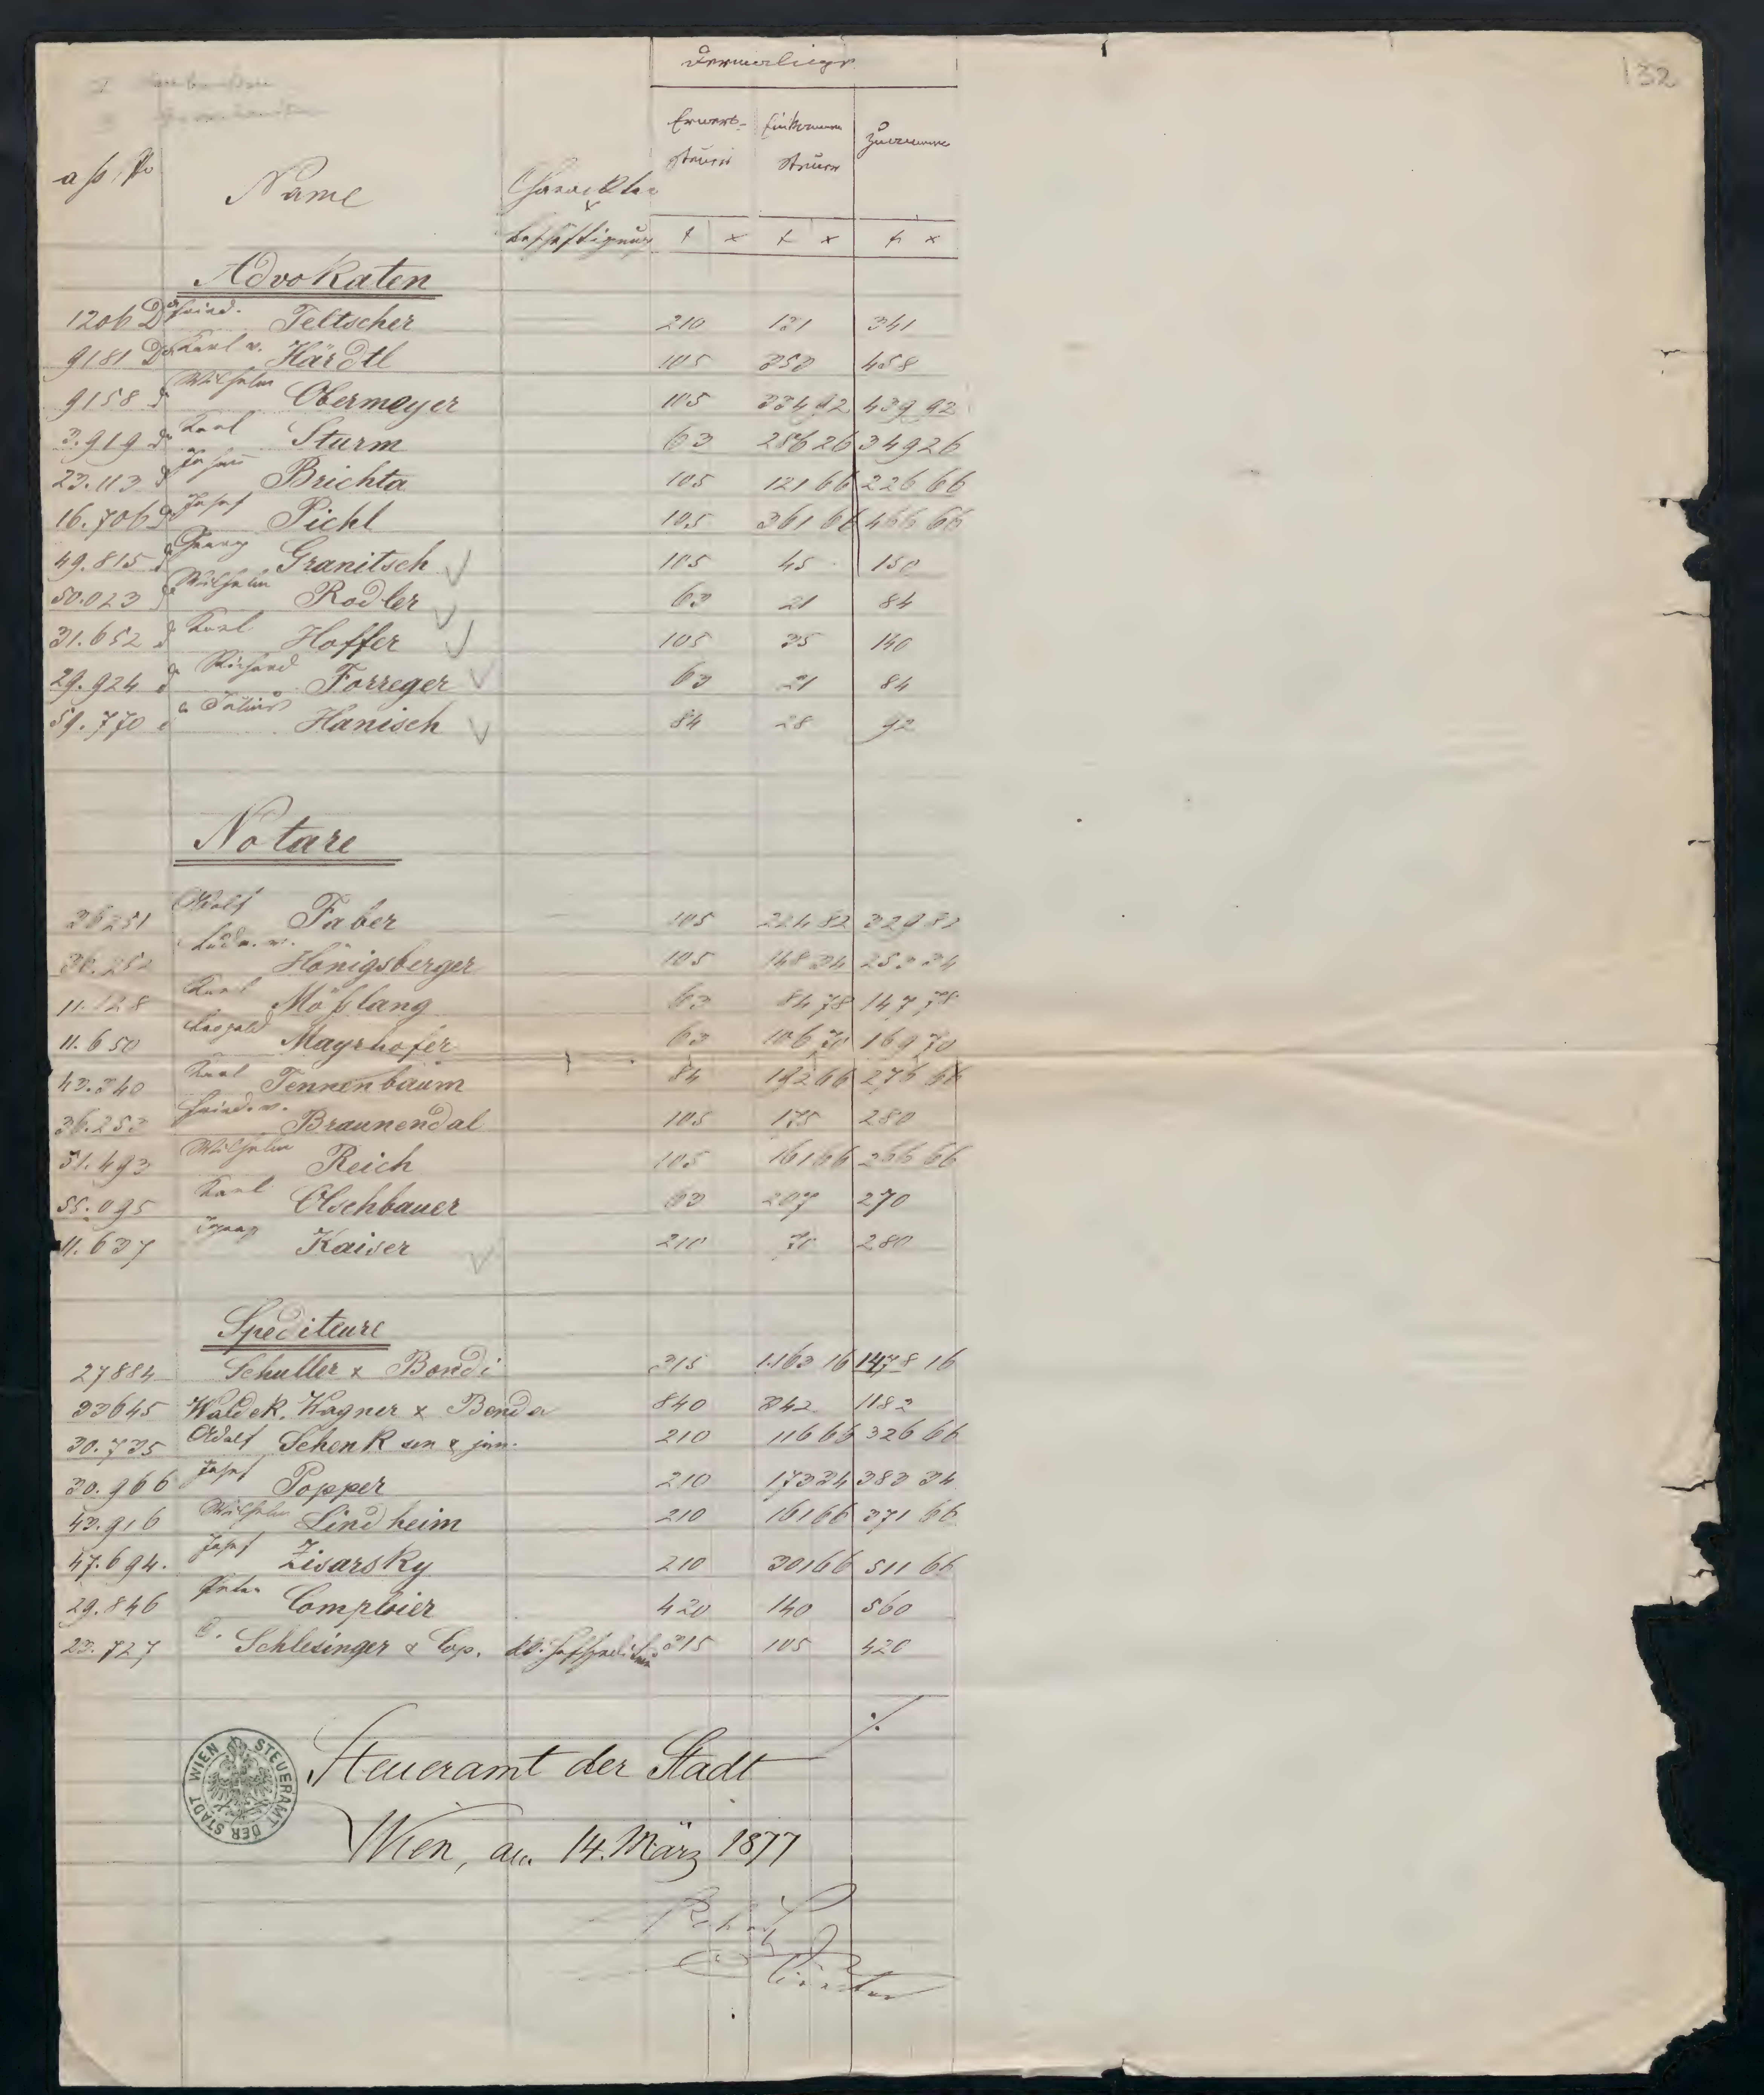 132
Dermalige
Erwerb- Einkommen Zusamme
steuer steuer
Name Charackter
Beschäftigung f x f x f x
Advokaten
1206 Dr Fried. Teltscher 210 131 341
9181 Dr Karl v. Härdtl 105 353 458
9158 Wilhelm Obermayer 105 334 92 439 92
3.919 Dr Karl Sturm 63 286 26 349 26
23.113 Brichta 105 121 66 226 66
16.706 Josef Pichl 105 361 66 466 66
49.815 Georg Granitsch 105 45 150
50.023 Wilhelm Rodler 63 21 84
31.652 Karl Hoffer 105 35 140
29.924 Richard Forreger 63 21 84
59.770 Julius Hanisch 84 28 92
Notare
36251 Adolf Faber 105 224 82 329 82
36.252 Ludw. v. Hönigsberger 105 148 34 253 34
11.128 Karl Mößlang 63 84 78 147 78
11.650 Leopold Mayrhofer 63 106 70 169 70
43.340 Karl Tennenbaum 84 192 66 276 66
36.253 Fried. v. Braunendal 105 175 280
51.493 Wilhelm Reich 105 161 66 266 66
55.095 Karl Olschbauer 63 207 270
11.637 Ignaz Kaiser 210 70 280
Spediteure
27884 Schuller & Bondi 315 1.163 16 1478 16
33645 Waldek, Wagner & Benda 840 342 1182
30.735 Adolf Schenk sen & jun. 210 116 66 326 66
30.966 Josef Popper 210 173 34 383 34
43.916 Wilhelm Lindheim 210 161 66 371 66
47.694. Josef Zisarsky 210 301 66 511 66
29.846 Peter Comploier 420 140 560
23.727 Schlesinger & Cop. kk. Hofspediteur 315 105 420
./.
Steueramt der Stadt
Wien, am 14. März 1877
STEUERAMT DER STADT WIEN